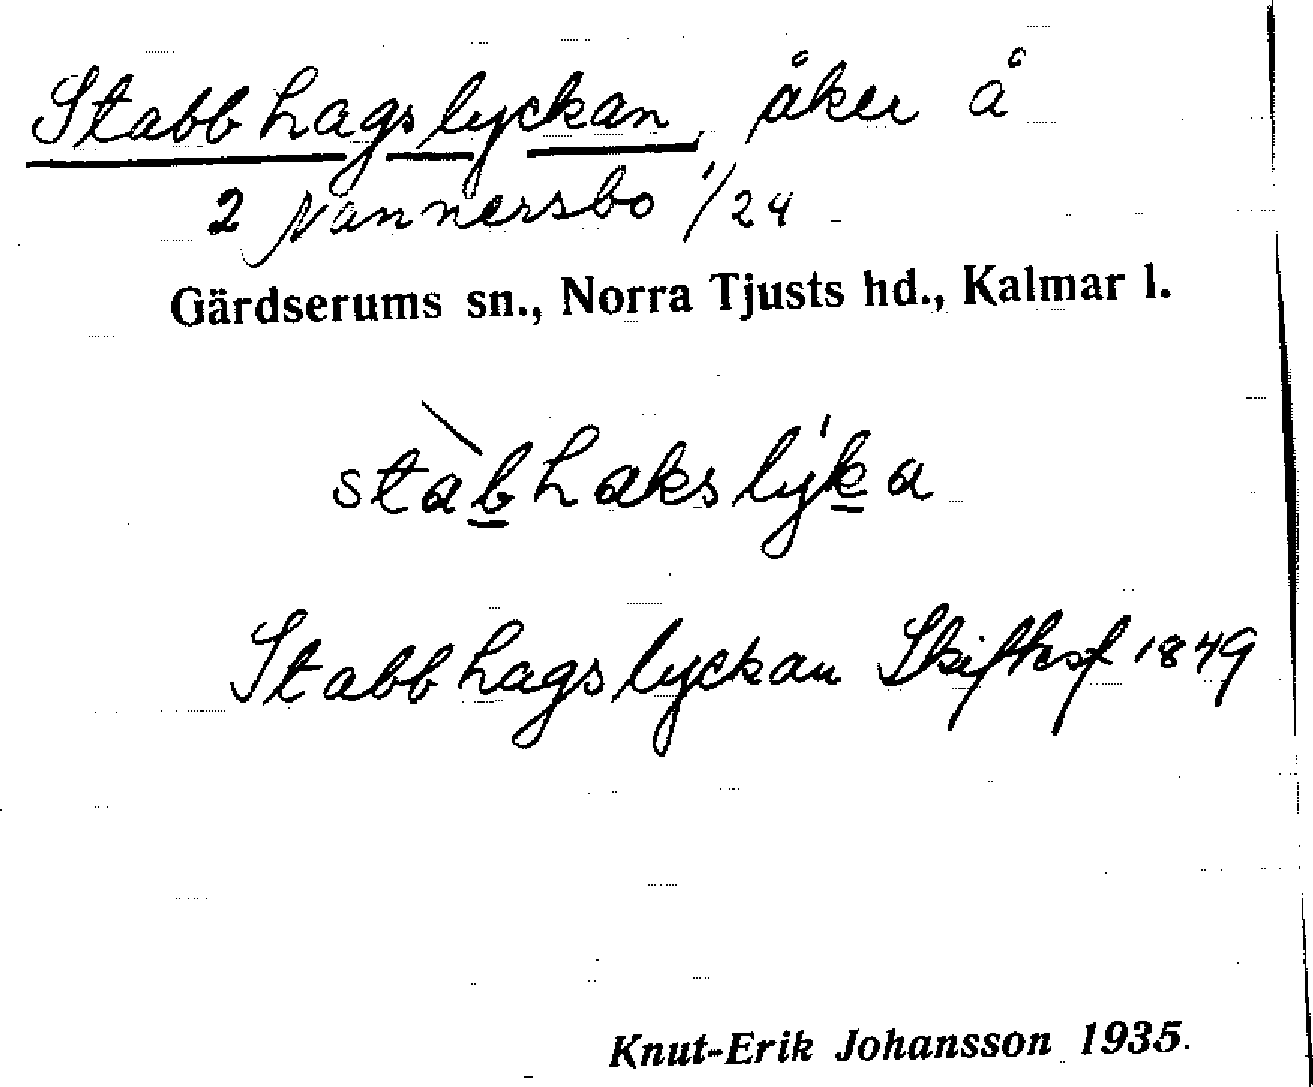 Stabbhagslyckan, åker å
2 Nannersbo 1/24
Gärdserums sn., Norra Tjusts hd., Kalmar l.
stàbhakslýka
Stabbhagslyckan Skifteskf 1849
Knut-Erik Johansson 1935.